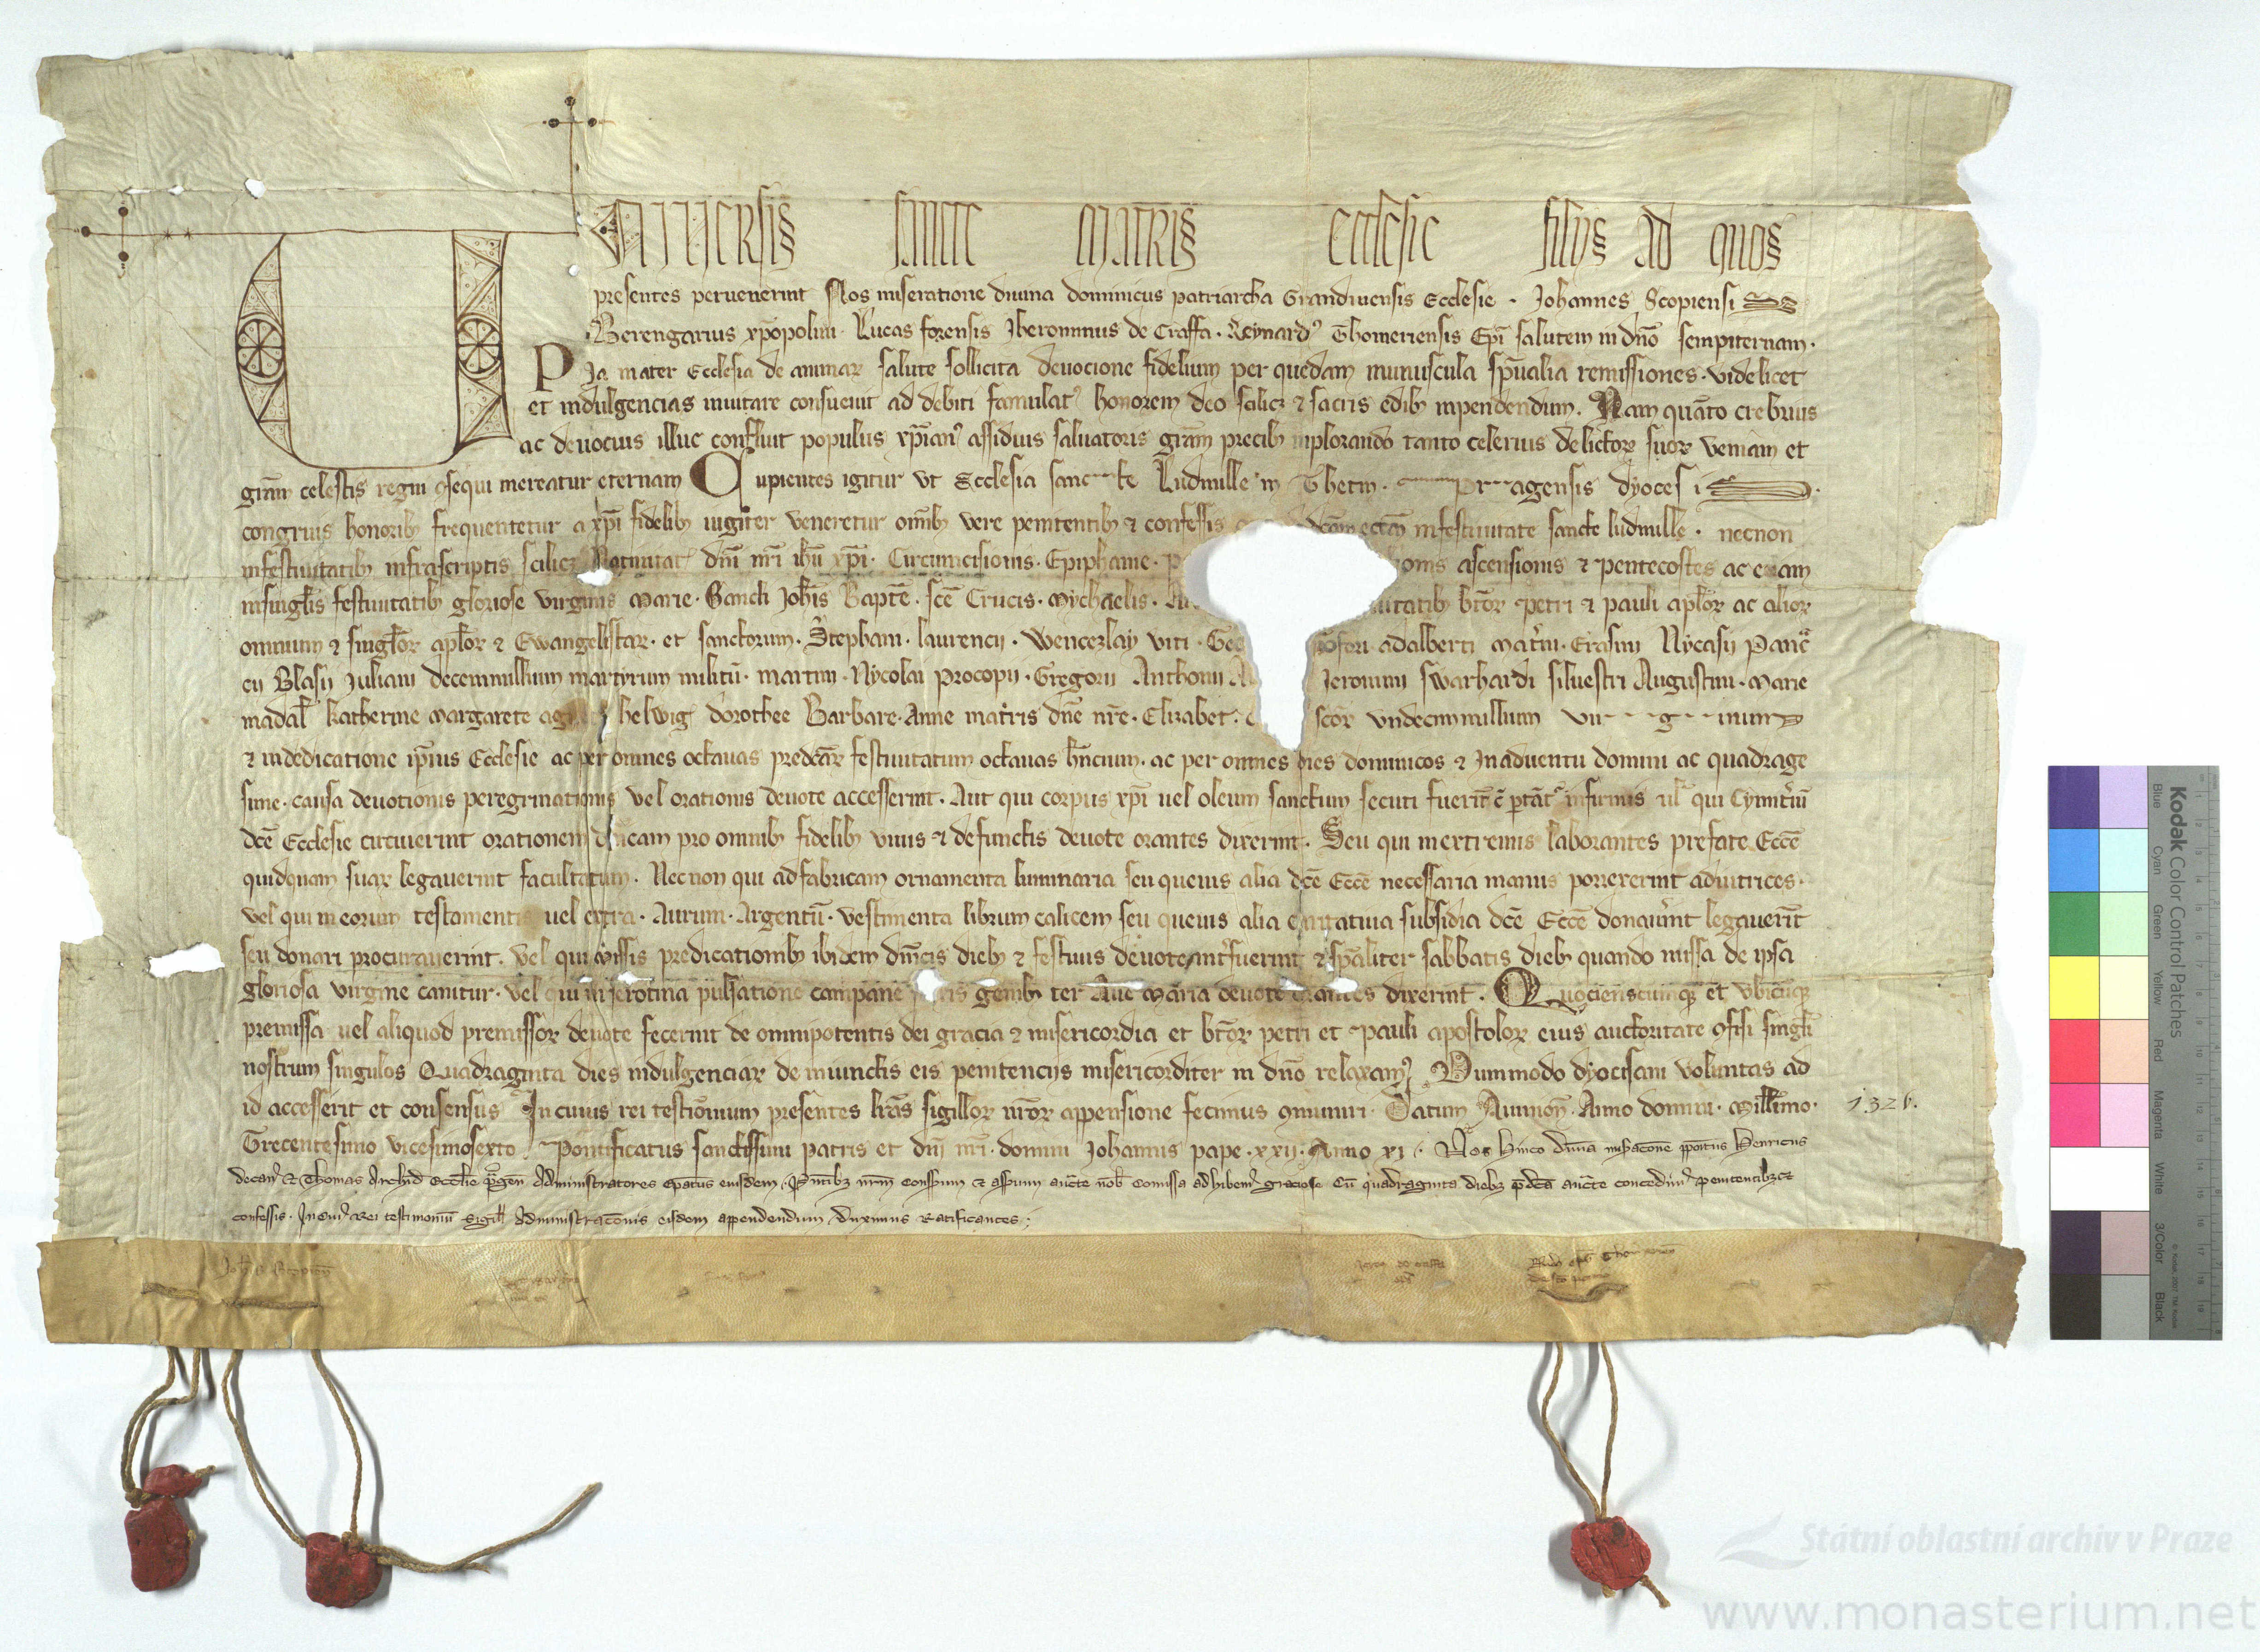 UNIVERSIS sancte MATRIS ecclesie filijs AD QUOS
presentes peruenerint Nos miseratione diuina dominicus patriarcha Grandiuensis Ecclesie · Johannes Scopiensis
Berengarius xp̄opolim · Lucas forensis Iheronimus de Craffa · Reynardꝰ Thomeriensis Ep̄i salutem in dn̄o sempiternam ·
Pia mater Ecclesia de animaꝝ salute sollicita deuocione fidelium per quedam munuscula sp̄ualia remissiones · videlicet
et indulgencias inuitare consueuit ad debiti famulatꝰ honorem deo scilicꝫ ⁊ sacris edibꝫ inpendendum . Nam quāto crebrius
ac deuocius illuc confluit populus xp̄ianꝰ assiduis saluatoris grām precibꝫ inplorando tanto celerius delictoꝝ suoꝝ veniam et
grām celestis regni ꝯsequi mereatur eternam Cupientes igitur vt Ecclesia sancte Ludmille in Thetin · Pragensis dyocesis
congruis honoribꝫ frequentetur a xp̄i fidelibꝫ iugiter veneretur om̄ibꝫ vere penitentibꝫ ⁊ confessis dc̄am ecc̄am infestiuitate sancte ludmille · necnon
infestiuitatibꝫ infrascriptis scilicꝫ Natiuitatis dn̄i nr̄i ihū xp̄i · Circumcisionis · Epiphanie · ascensionis ⁊ pentecostes ac etiam
insingl̄is festiuitatibꝫ gloriose virginis Marie · Sancti Joh̄is Bapt̄e · sc̄e Crucis · Mychaelis · bt̄oꝝ petri ⁊ pauli apl̄oꝝ ac alioꝝ
omnium ⁊ singl̄oꝝ apl̄oꝝ ⁊ Ewangelistaꝝ · et sanctorum · Stephani · laurencij · Wencezlay viti · adalberti Mart̄ini · Erasmi Nycasij Panc̄
cij Blasij Juliani decemmillium martyrum militū · martini · Nycolai procopij · Gregorij Anthonij Jeronimi swarhardi siluestri Augustini · Marie
madal̄ katherine Margarete helwig dorothee Barbare · Anne matris dn̄e nr̄e · Elizabet · sc̄oꝝ vndecimmillium virginum
⁊ indedicatione ip̄ius Ecclesie ac per omnes octauas predc̄aꝝ festiuitatum octauas h̄ncium · ac per omnes dies dominicos ⁊ Inaduentu domini ac quadrage
sime · causa deuotionis peregrinationis vel orationis deuote accesserint . Aut qui corpus xp̄i uel oleum sanctum secuti fuerīt infirmis ul̄ qui Cymit̄iū
dc̄e Ecclesie circuierint orationem dn̄icam pro omnibꝫ fidelibꝫ viuis ⁊ defunctis deuote orantes dixerint . Seu qui inextremis laborantes prefate Ecc̄e
quidquam suaꝝ legauerint facultatum . Necnon qui adfabricam ornamenta luminaria seu queuis alia dc̄e Ecc̄e necessaria manus porrexerint adiutrices ·
vel qui in eorum testamentis uel extra · Aurum · Argentū · vestimenta librum calicem seu queuis alia caritatiua subsidia dc̄e Ecc̄e donau̓int legauerīt
seu donari procurauerint . vel qui missis predicationibꝫ ibidem dn̄icis diebꝫ ⁊ festiuis deuote int̓fuerint ⁊ sp̄aliter sabbatis diebꝫ quando missa de ipsa
gloriosa virgine canitur · vel qui in serotina pulsatione campane genibꝫ ter Aue Maria deuote orantes dixerint . Quocienscumqꝫ et vbicūqꝫ
premissa uel aliquod premissoꝝ deuote fecerint de omnipotentis dei gracia ⁊ misericordia et bt̄oꝝ petri et pauli apostoloꝝ eius auctoritate ꝯfisi singl̄i
nostrum singulos Quadraginta dies indulgenciaꝝ de iniunctis eis penitencijs misericorditer in dn̄o relaxamꝰ Dummodo dyocisani voluntas ad
id accesserit et consensus In cuius rei testimonium presentes lr̄as sigilloꝝ nr̄oꝝ appensione fecimus ꝯmuniri · Datum Auinion̄ · Anno domini · Mill̄imo · 1326.
Trecentesimo vicesimosexto . Pontificatus sanctissimi patris et dn̄i nr̄i · domini Johannis pape · xxij · Anno xi · Nos hinco henricus
decanꝰ ⁊ Thomas Archid̄ Eccl̄ie p̄gen̄ Administratores ep̄atus eiusdem nr̄m graciose quadraginta diebꝫ p̄dc̄a auct̄e concedimꝰ penitentibꝫ ⁊
confessis · Incuiꝰ rei testimoniū Sigill̄ Administrac̄onis eisdem appendendum duximus Ratificantes ·
Státní oblastní archiv v Praze
www.monasterium.net
Kodak Color Control Patches
Blue Cyan Green Yellow Red Magenta White 3/Color Black